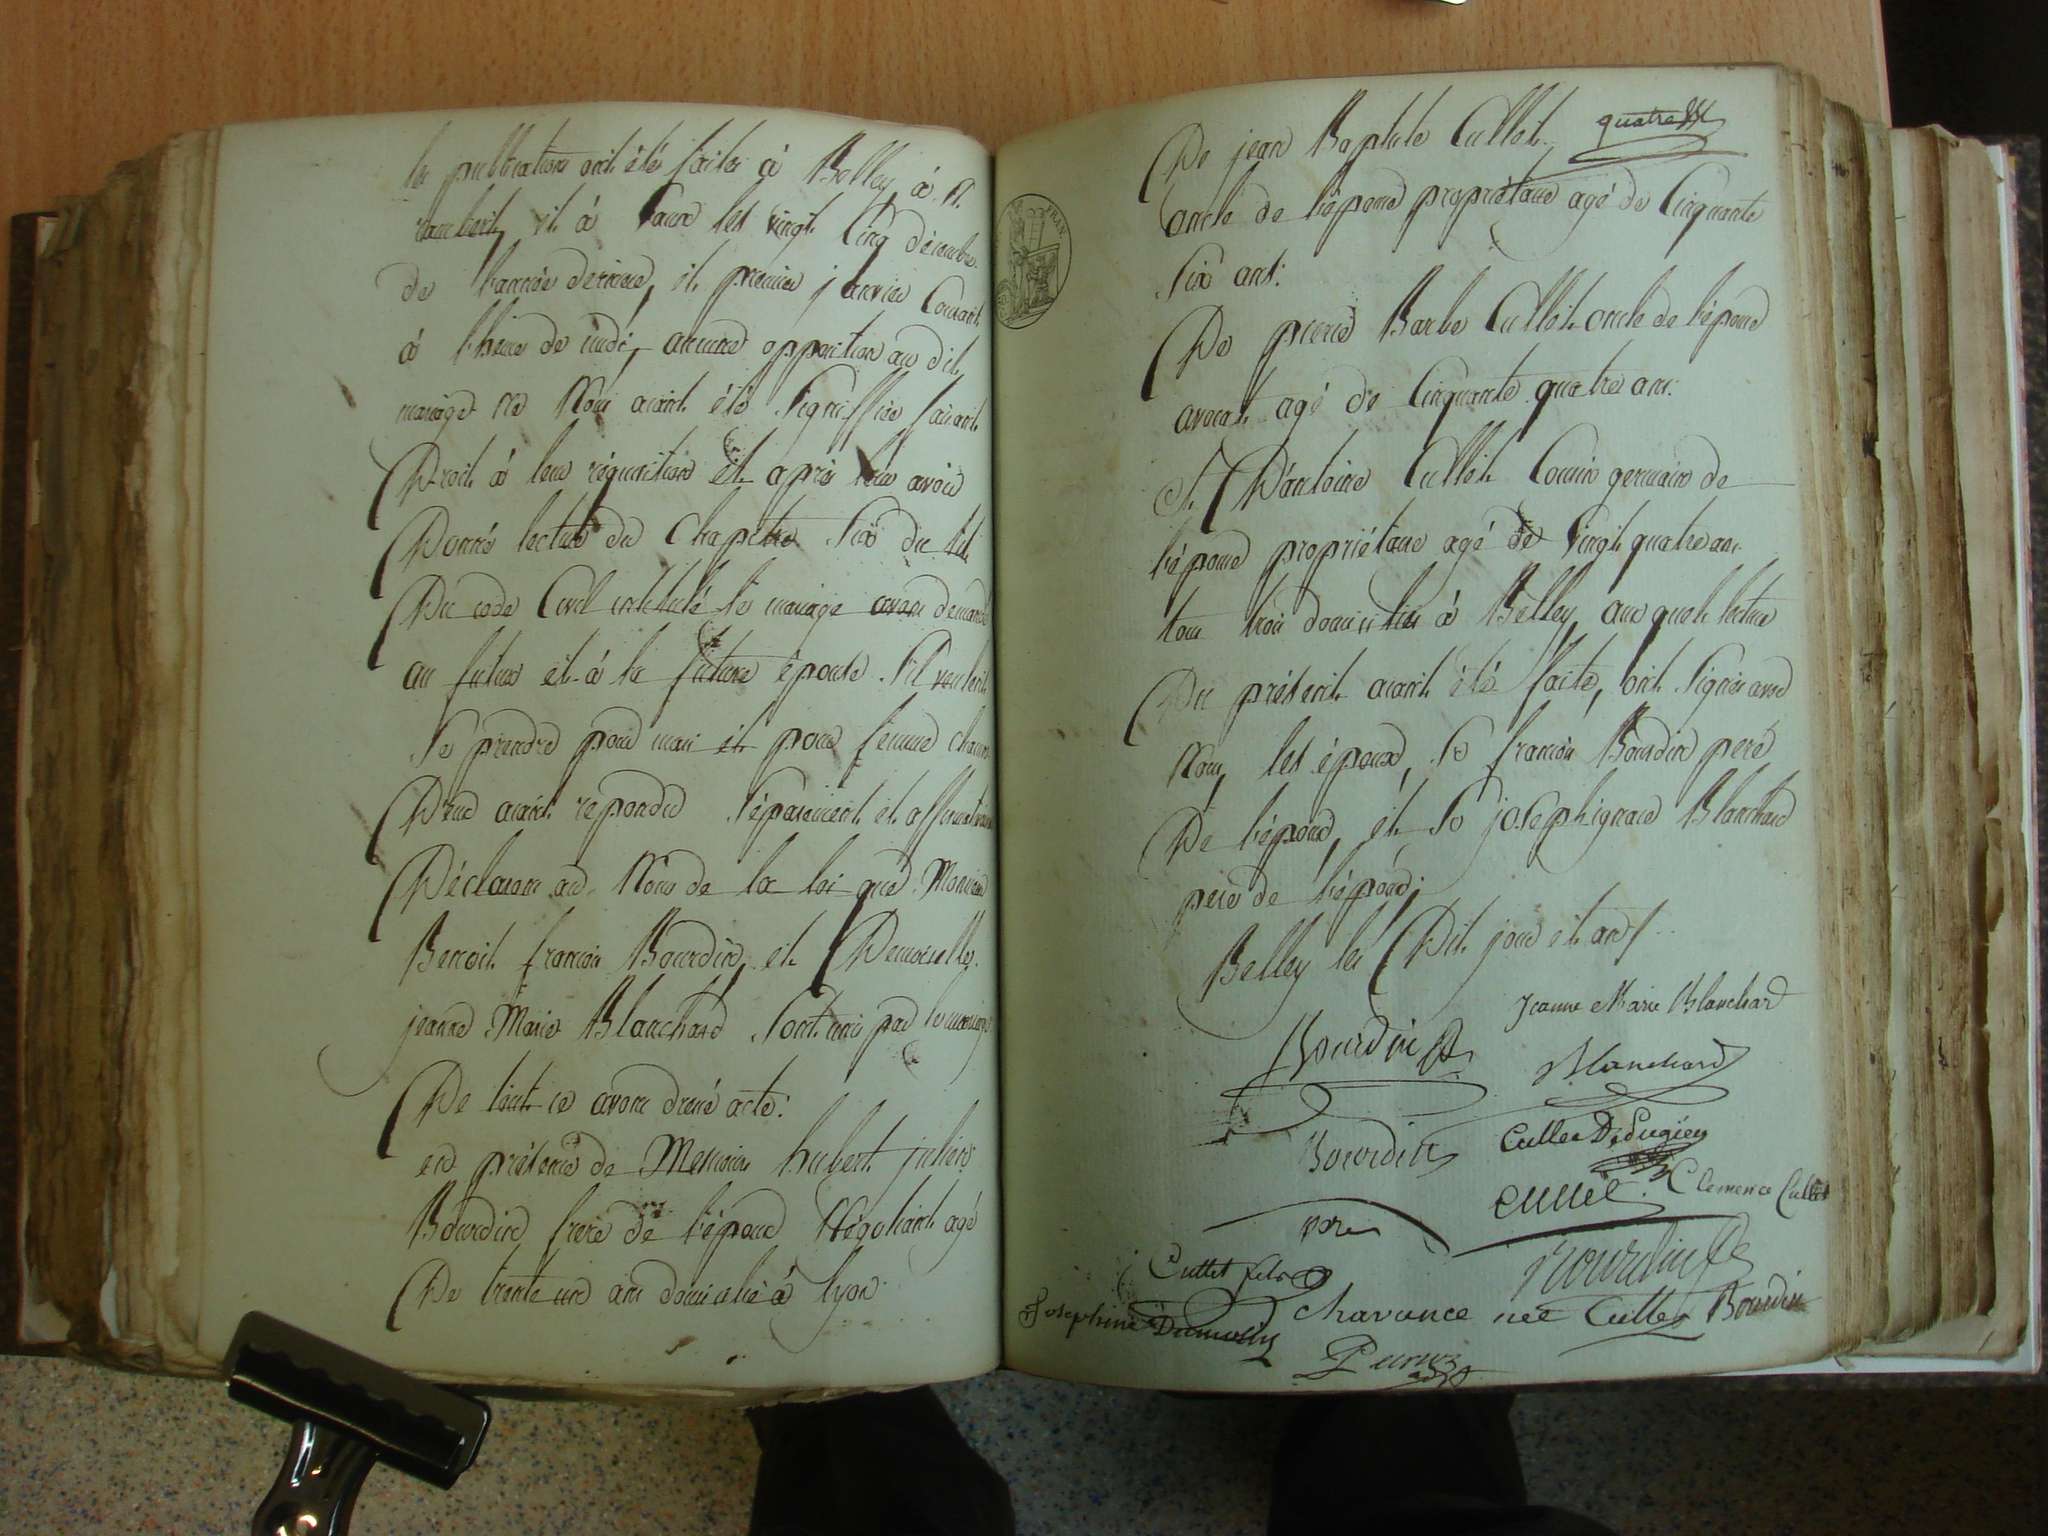 les publications ont été faites à Belley, à St.
rambert, et à Vaux les vingt cinq décembre
de l'année derniere, et premier janvier Courant
à l'heure de midi, aucune opposition au dit
mariage ne Nous aiant été Signiffiée faisant
Droit à leur réquisition et après leur avoir
Donné lecture du Chapitre Six du tit.
Du code Civil intitulé le mariage avons demandé
au futur et à la future épouse S'il veulent
Se prendre pour mari et pour femme chacun
D'eux aiant repondu Séparement et affirmativement
Déclarons au Nom de la loi que Monsieur
Benoit françois Bourdin, et Demoiselle
jeanne Marie Blanchard Sont unis par le mariage
De tout ce avons dressé acte:
en présence de Messieurs hubert julien
Bourdin frere de l'époux Négotiant agé
De trente un ans domicilié à Lyon
quatre
De jean Baptiste Cullet
oncle de l'épouse propriétaire agé de Cinquante
Six ans:
De pierre Barbe Cullet oncle de l'épouse
avocat agé de Cinquante quatre ans:
Et D'antoine Cullet Cousin germain de
l'épouse propriétaire agé de Vingt quatre ans
tous trois domiciliés à Belley, aux quels lecture
Du présent aiant été faite, ont Signés avec
Nous, les époux, Sr françois Bourdin pere
De l'époux, et Sr joseph ignace Blanchard
pere de l'épouse;
Belley les Dit jour et an
Jeanne Marie Blanchard
Bourdin
Blanchard
Bourdin
Cullet Dilugieu
Cullet Clemence Cullet
Bourdin
Cullet fils
Chavance née Cullet Bourdin
Josephine Dumoulin